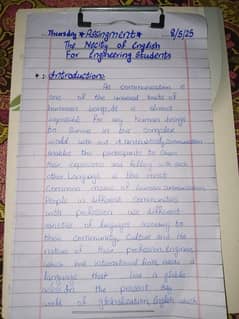 Thursday *Assingment* 8/5/25
The Necity of English
For Engineering Students
*: Introduction:
As communication is
one of the universal traits of
human beings, It is almost
impossible for any human beings
to Survive in this complex
world with out it
enables the participants to share
their expression and felling with each
other. Language is the most
Common means of human communication
People in different Communities
with profession use different
varieties of languages according to
their Community, Culture and the
nature of their profession. Engineers
which need international level, needs a
language that has a globle
access. In the present day
world of globalization, English which